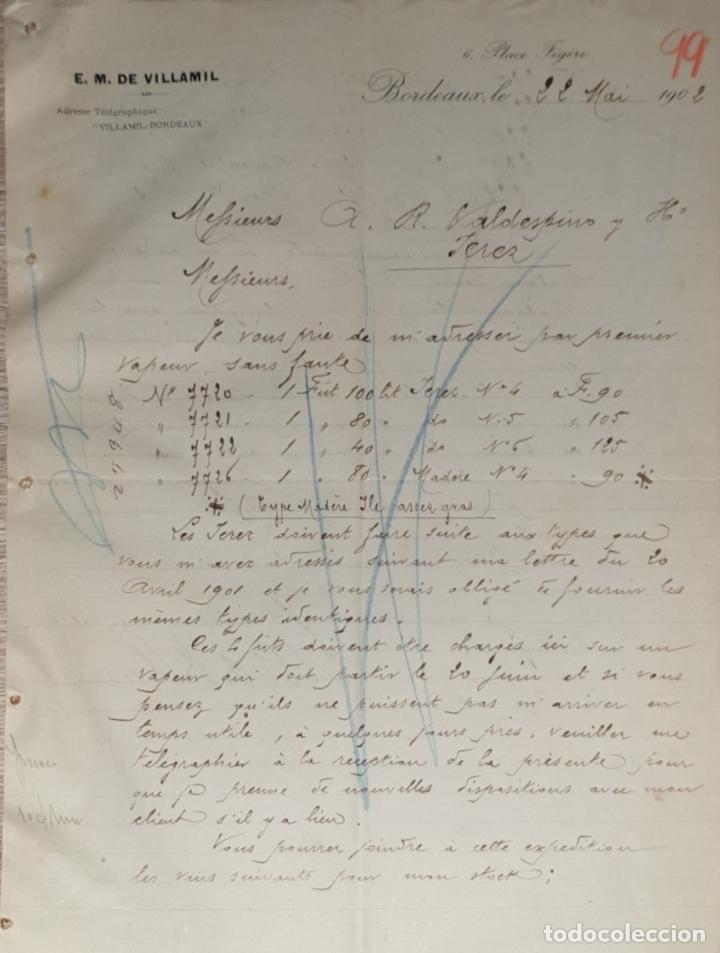 6, Place Tigère
99
E. M. DE VILLAMIL
Bordeaux, le 22 Mai 1902
Adresse Télégraphique:
"VILLAMIL-BORDEAUX"
Messieurs A. R. Valdespino y Hº
Jerez
Messieurs,
Je vous prie de m'adresser par premier
vapeur sans faute
Nº 7720 - 1 Fût 100 lit Jerez Nº 4 à F. 90
" 7721 - 1 " 80 " do Nº 5 " 105
" 7722 - 1 " 40 " do Nº 6 " 125
" 7726 - 1 " 80 " Madère Nº 4 " 90 ※
※ (type Madère Ile assez gras)
Les Jerez doivent faire suite aux types que
vous m'avez adressés suivant ma lettre du 20
Avril 1901 et je vous serais obligé de fournir les
mêmes types identiques.
Ces 4 fûts doivent être chargés ici sur un
vapeur qui doit partir le 20 Juin et si vous
pensez qu'ils ne puissent pas m'arriver en
temps utile, à quelques jours près, veuillez me
télégraphier à la réception de la présente pour
que je prenne de nouvelles dispositions avec mon
client s'il y a lieu.
Vous pourrez joindre à cette expédition
les vins suivants pour mon stock:
todocoleccion.net